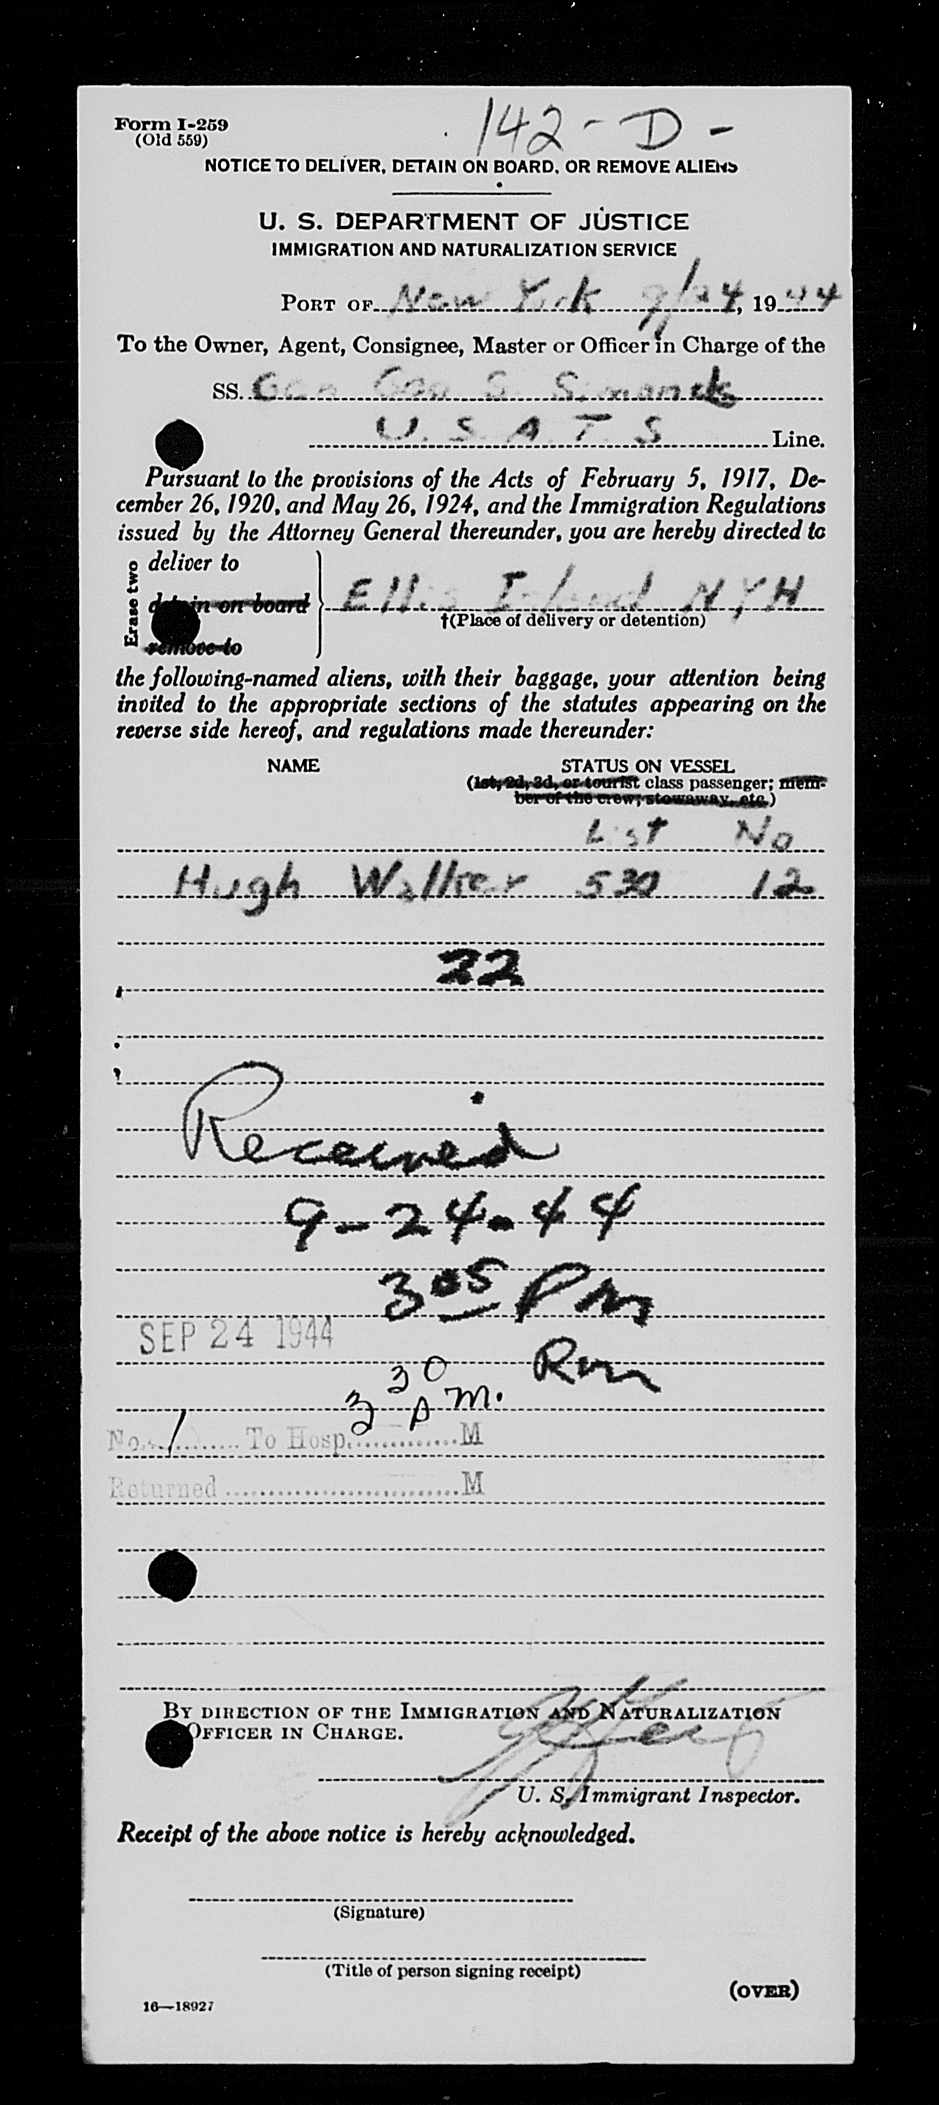 Form I-259
(Old 559)
142-D-
NOTICE TO DELIVER, DETAIN ON BOARD, OR REMOVE ALIENS
U. S. DEPARTMENT OF JUSTICE
IMMIGRATION AND NATURALIZATION SERVICE
PORT OF New York 9/24, 1944
To the Owner, Agent, Consignee, Master or Officer in Charge of the
SS. Gen Geo S. Simonds
U.S.A.T.S Line.
Pursuant to the provisions of the Acts of February 5, 1917, De-
cember 26, 1920, and May 26, 1924, and the Immigration Regulations
issued by the Attorney General thereunder, you are hereby directed to
Erase two
deliver to
detain on board
remove to
Ellis Island NYH
†(Place of delivery or detention)
the following-named aliens, with their baggage, your attention being
invited to the appropriate sections of the statutes appearing on the
reverse side hereof, and regulations made thereunder:
NAME STATUS ON VESSEL
(1st, 2d, 3d, or tourist class passenger; mem-
ber of the crew, stowaway, etc.)
List No
Hugh Walker 530 12
22
Received
9-24-44
3 05 PM
SEP 24 1944
3 30 P.M.
No. 1 To Hosp. M
Returned M
BY DIRECTION OF THE IMMIGRATION AND NATURALIZATION
OFFICER IN CHARGE.
U. S. Immigrant Inspector.
Receipt of the above notice is hereby acknowledged.
(Signature)
(Title of person signing receipt)
(OVER)
16—18927